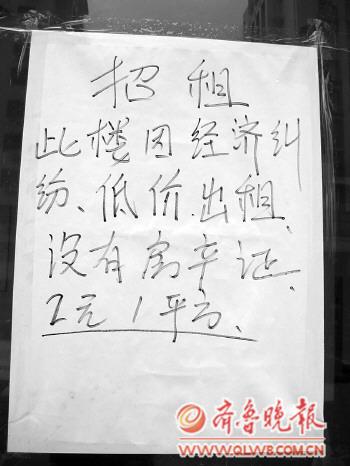 招租
此楼因经济纠
纷、低价.出租.
没有房产证.
2元1平方、
齐鲁晚报
WWW.QLWB.COM.CN